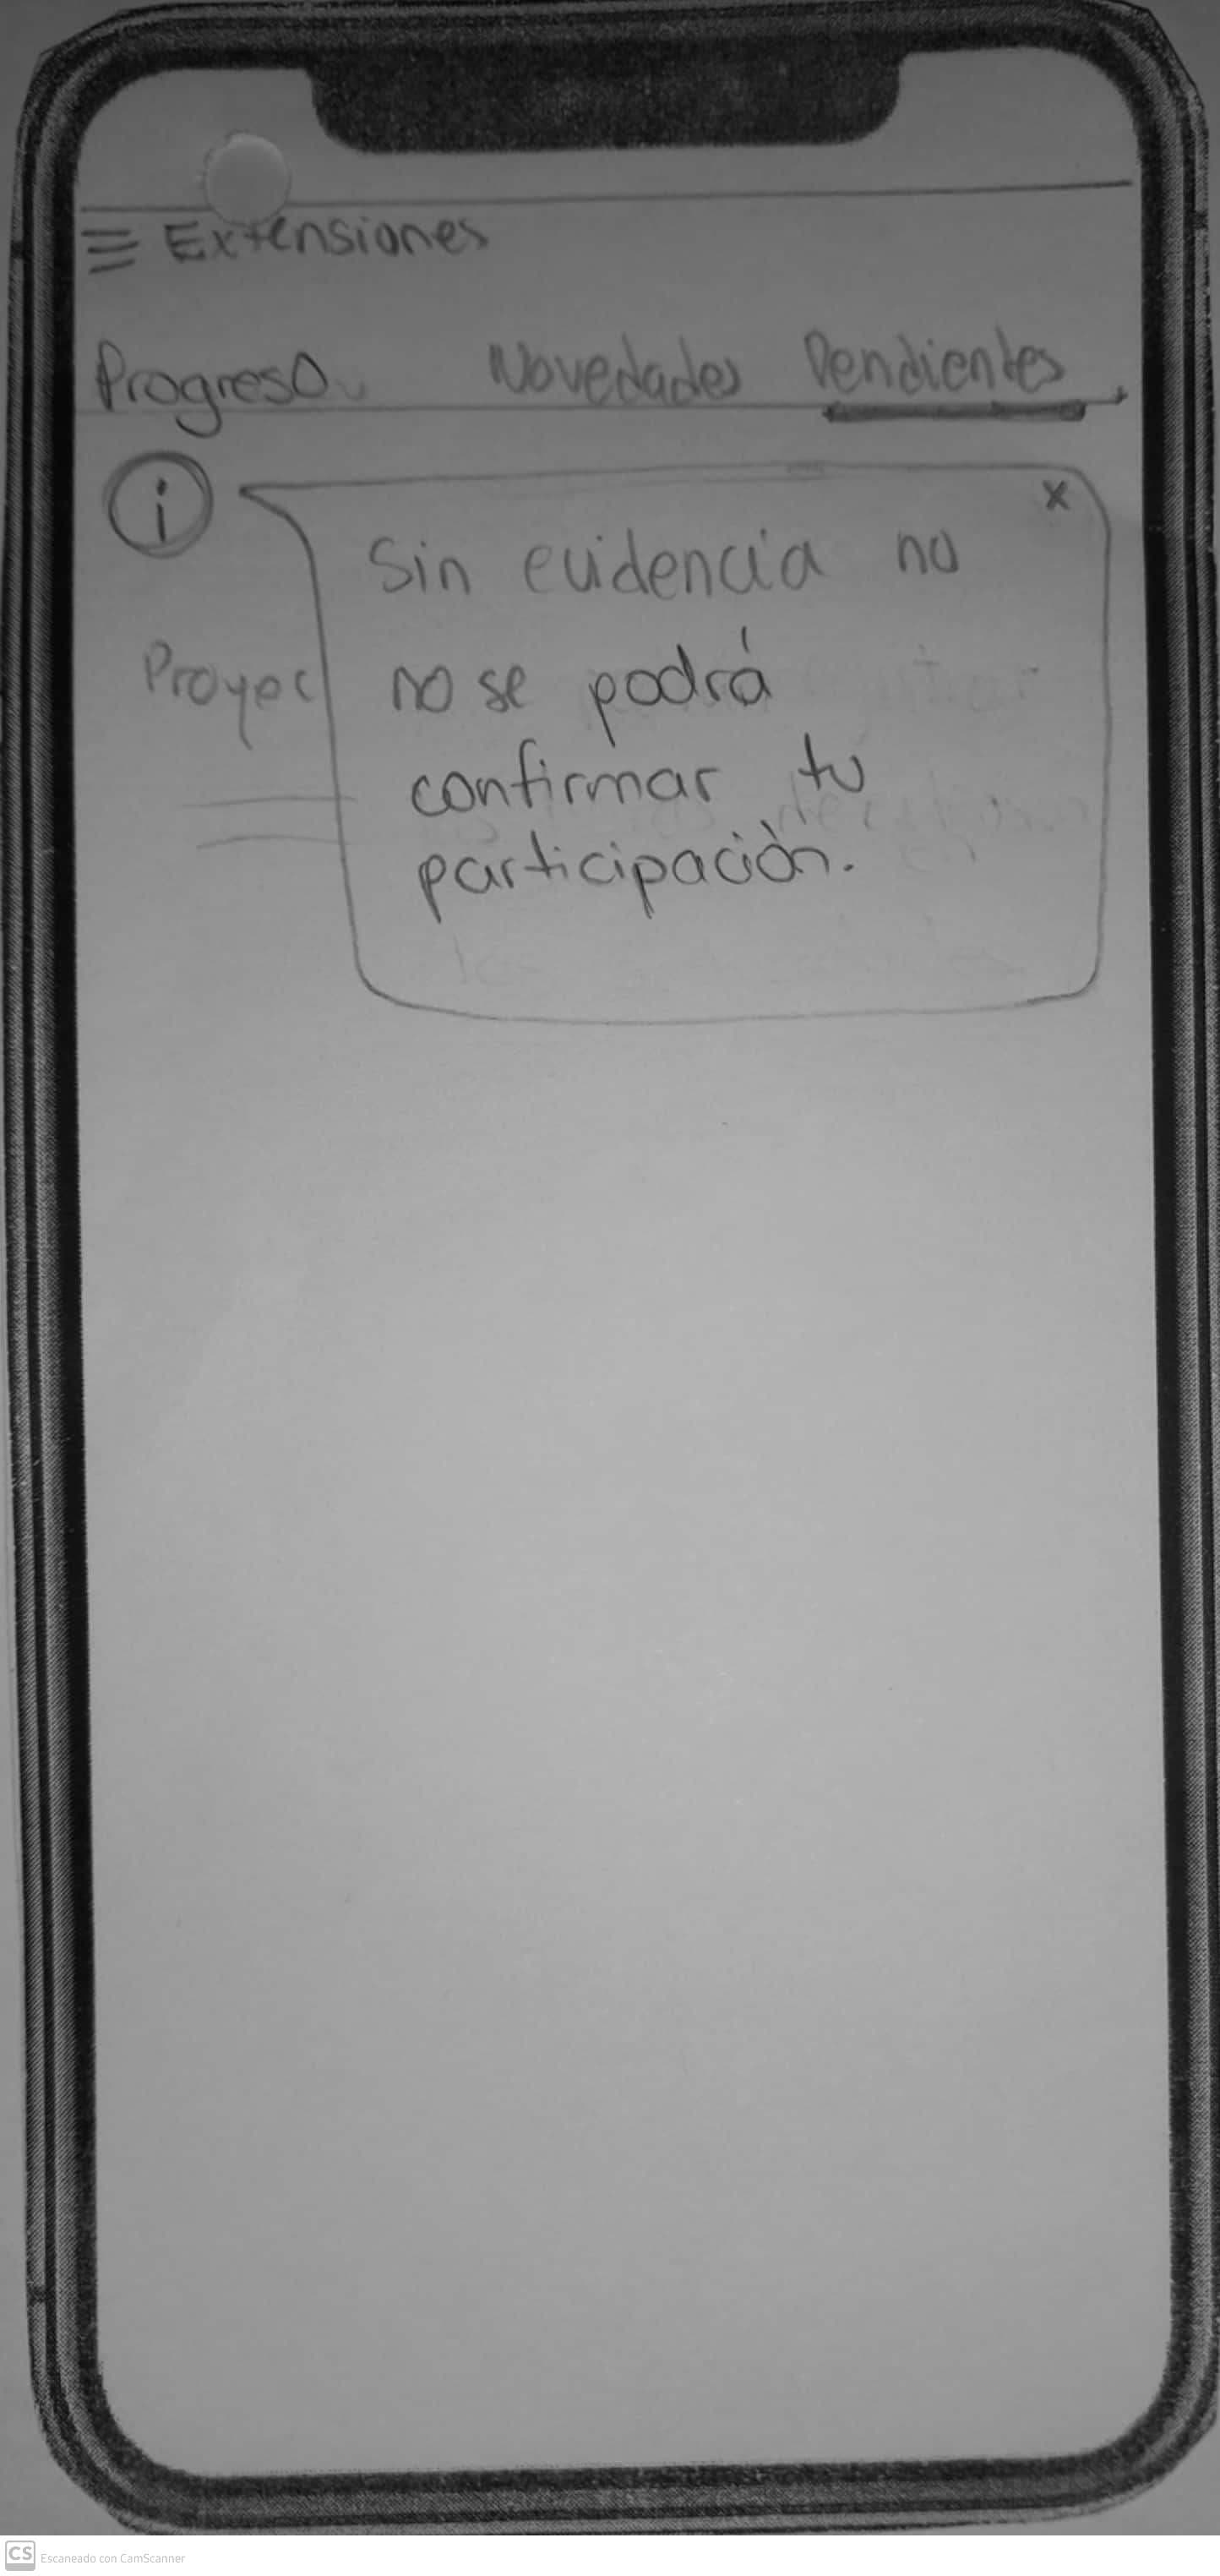 Extensiones
Progreso Novedades Pendientes
i
x
Sin evidencia no
Proyec
no se podrá
confirmar tu
participación.
CS Escaneado con CamScanner